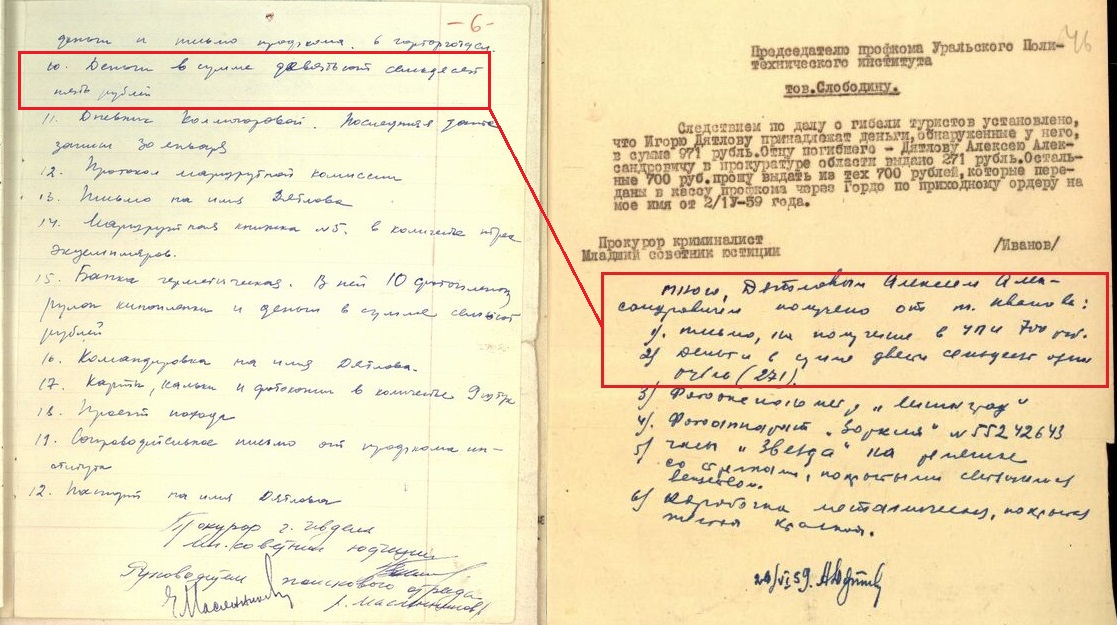 -6-
деньги и письмо профкома. в горторготдел.
10. Деньги в сумме девятьсот семьдесят
пять рублей
11. Дневник Колмогоровой. Последняя дата
записи 30 января
12. Протокол маршрутной комиссии
13. Письмо на имя Дятлова
14. Маршрутная книжка №5. в количестве трех
экземпляров.
15. Банка герметическая. В ней 10 фотопленок
рулон кинопленки и деньги в сумме семьсот
рублей
16. Командировка на имя Дятлова.
17. Карты, кальки и фотокопии в количестве 9 штук
18. Проект похода
19. Сопроводительное письмо от профкома ин-
ститута
12. Паспорт на имя Дятлова
Прокурор г. Ивделя
мл. советник юстиции
Руководитель поискового отряда
Е. Масленников
46
Председателю профкома Уральского Поли-
технического института
тов.Слободину.
Следствием по делу о гибели туристов установлено,
что Игорю Дятлову принадлежат деньги,обнаруженные у него,
в сумма 971 рубль.Отцу погибшего - Дятлову Алексею Алек-
сандровичу в прокуратуре области выдано 271 рубль.Осталь-
ные 700 руб.прошу выдать из тех 700 рублей,которые пере-
даны в кассу профкома через Гордо по приходному ордеру на
мое имя от 2/1У-59 года.
Прокурор криминалист
Младший советник юстиции
/Иванов/
Мною, Дятловым Алексеем Алек-
сандровичем получено от т. Иванова:
1). письмо, на получение в УПИ 700 руб.
2) Деньги в сумме двести семьдесят один
рубль (271).
3)
4). Фотоаппарат "Зоркий" №55242643
5) часы "Звезда" на ремешке
со стрелками, покрытыми светящимся
веществом.
6) коробочка металлическая, покрытая
краской.